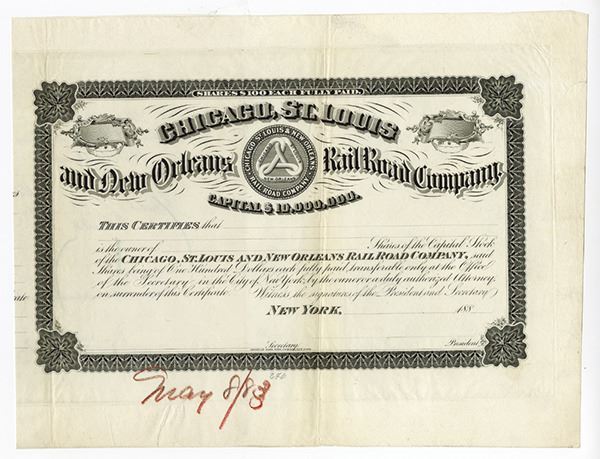 SHARES $100 EACH FULLY PAID.
CHICAGO, ST. LOUIS
and New Orleans Rail Road Company,
CHICAGO ST. LOUIS & NEW ORLEANS
RAIL ROAD COMPANY
NEW ORLEANS
CAPITAL $ 10,000,000.
THIS CERTIFIES that
is the owner of Shares of the Capital Stock
of the CHICAGO, ST. LOUIS AND NEW ORLEANS RAIL ROAD COMPANY, said
Shares being of One Hundred Dollars each fully paid, transferable only at the Office
of the Secretary, in the City of New York, by the owner or a duly authorized Attorney,
on surrender of this Certificate. Witness the signatures of the President and Secretary,
NEW YORK, 188
Secretary. President.
May 8/83